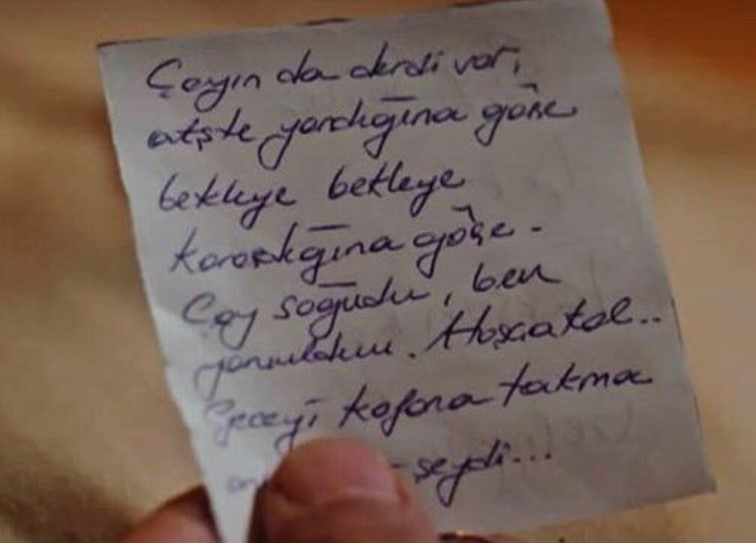 Çayın da derdi var,
ateşte yandığına göre
bekleye bekleye
karardığına göre.
Çay soğudu, ben
yoruldum. Hoşçakal..
Geceyi kafana takma
şeydi...